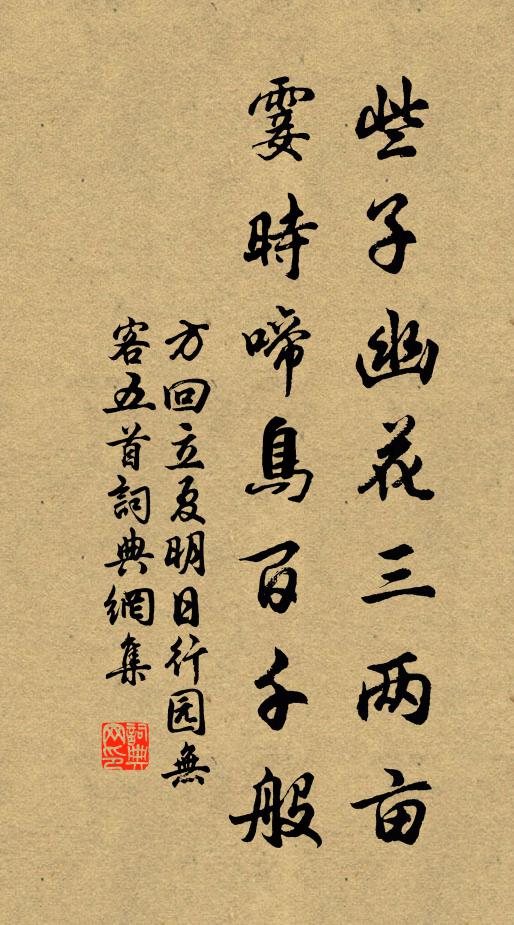 些子幽花三两亩
霎時啼鳥百千般
方回立夏明日行园無
客五首詞典網集
詞典
网印